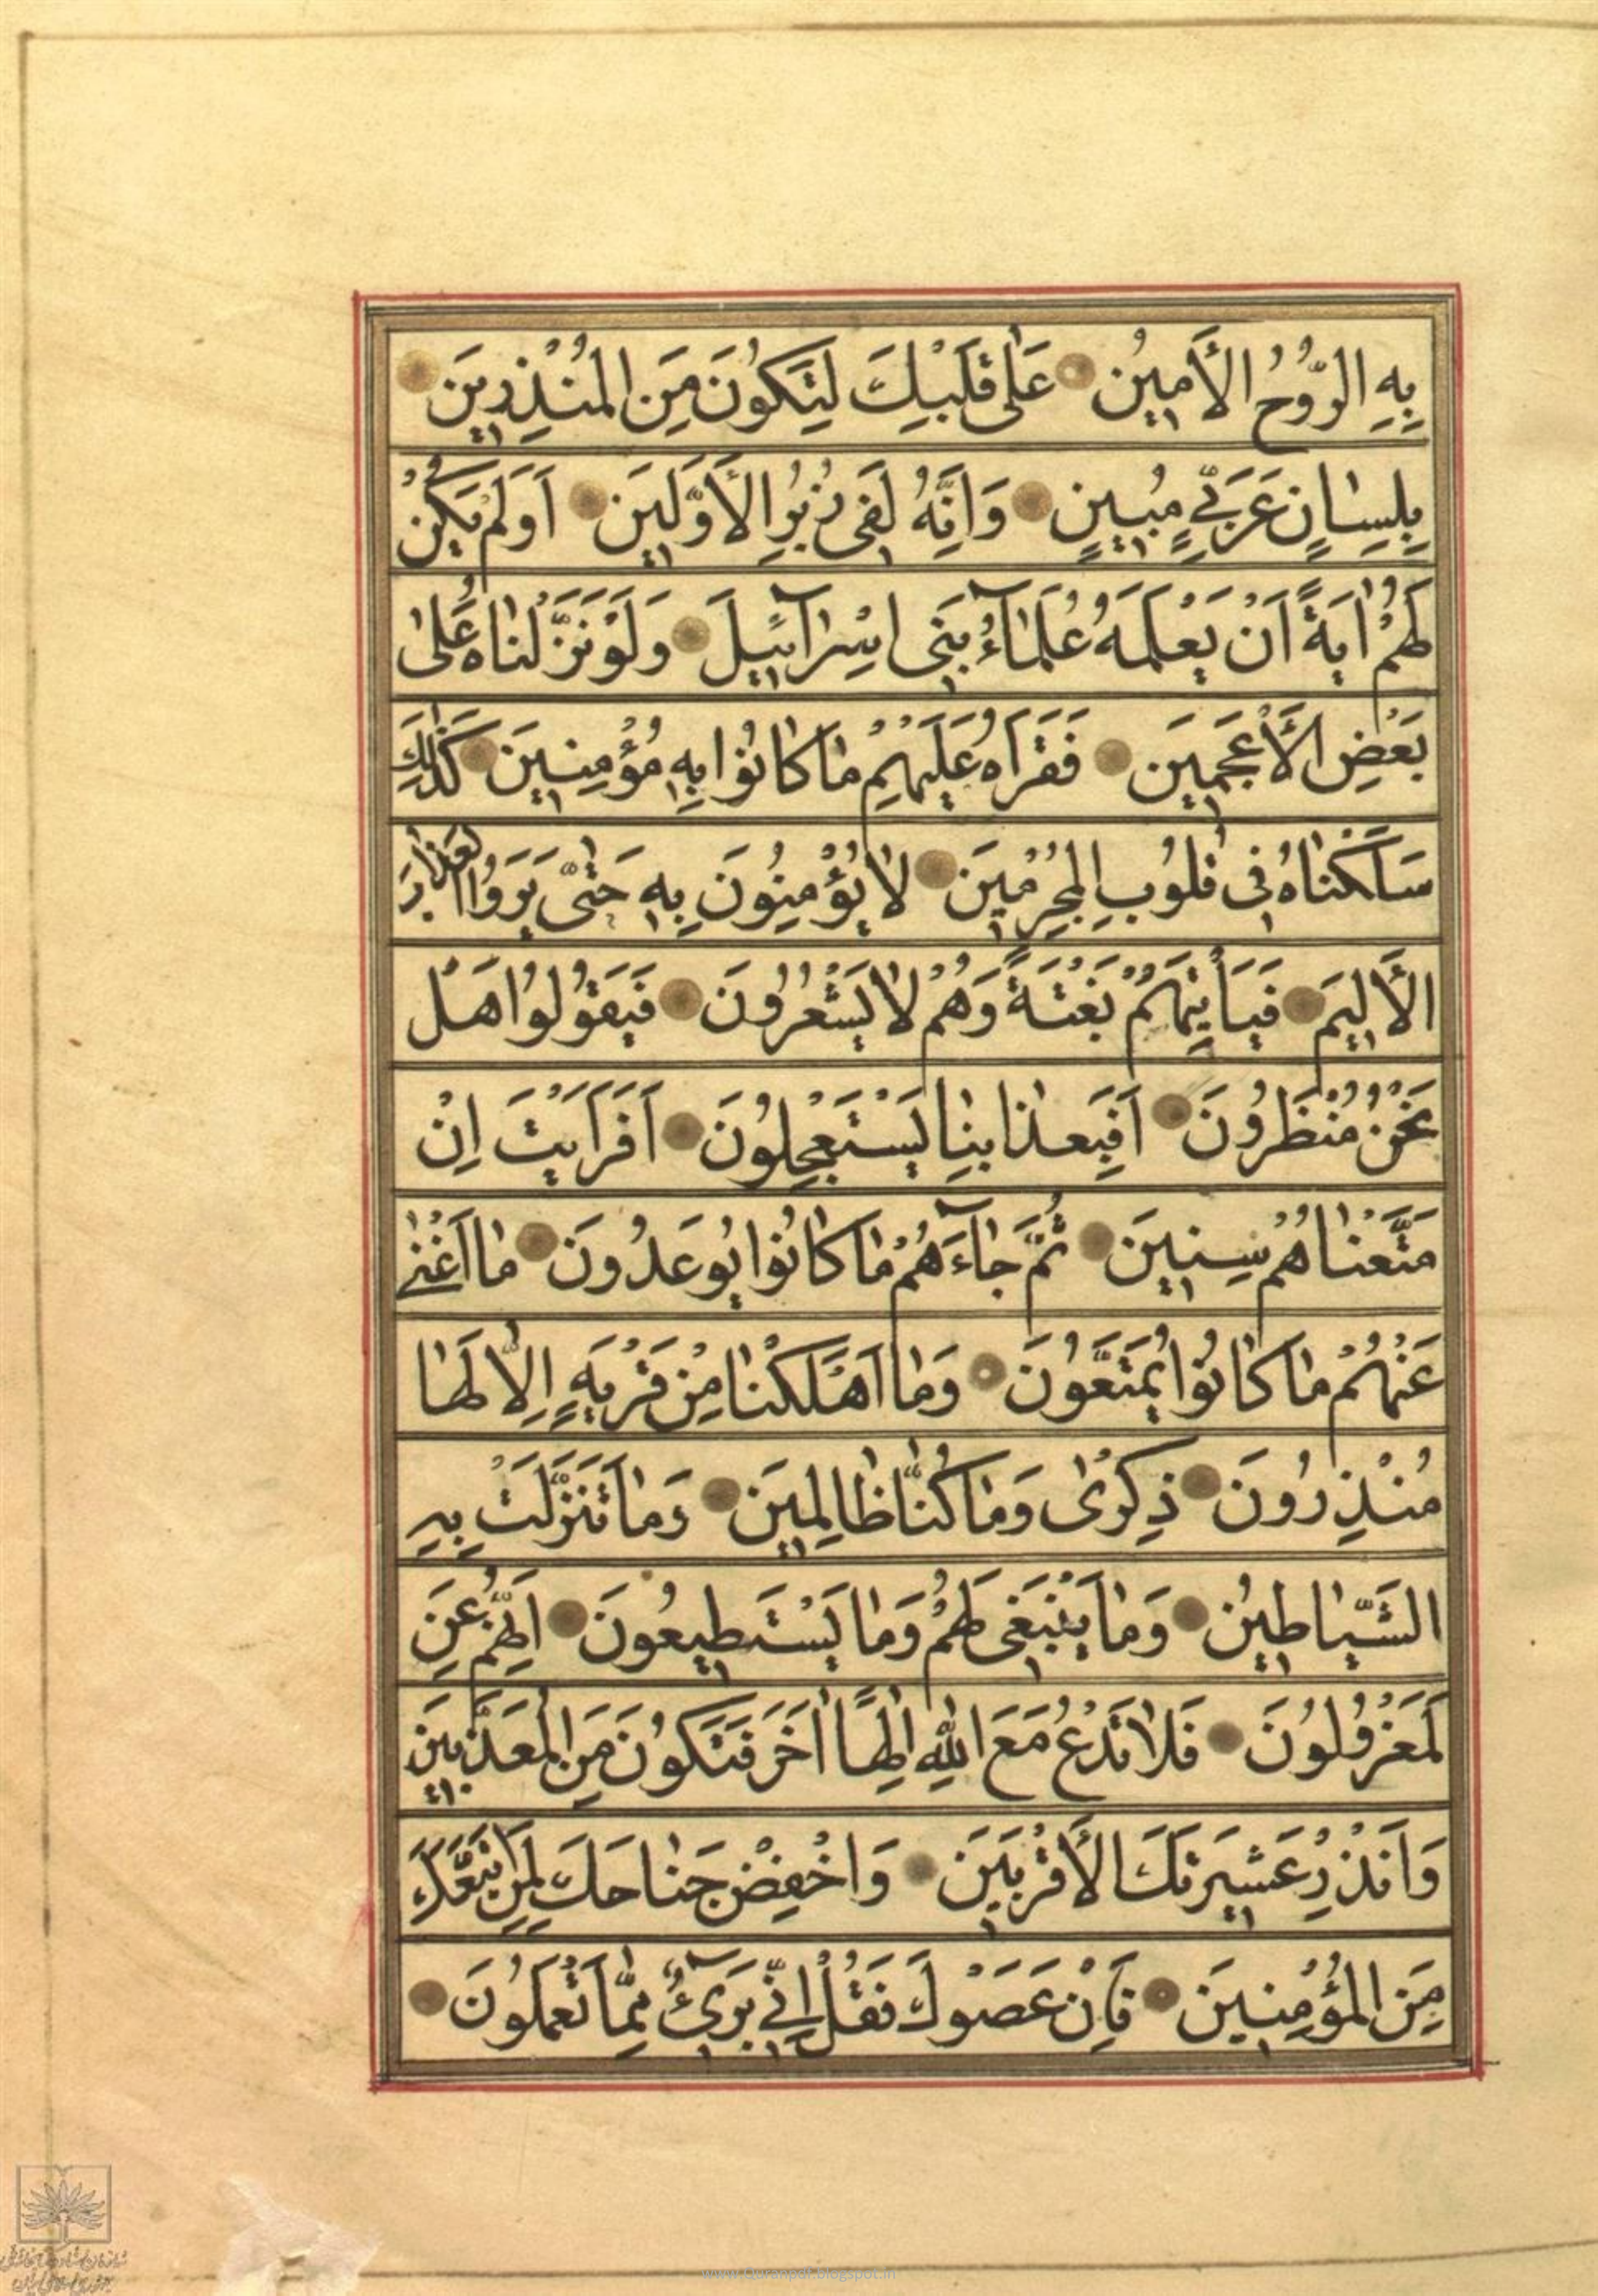 بِهِ الرُّوحُ الْأَمِينُ عَلٰى قَلْبِكَ لِتَكُونَ مِنَ الْمُنْذِرِينَ
بِلِسٰانٍ عَرَبِيٍّ مُبِينٍ وَاِنَّهُ لَفِى زُبُرِ الْأَوَّلِينَ اَوَلَمْ يَكُنْ
لَهُمْ اٰيَةً اَنْ يَعْلَمَهُ عُلَمٰٓاءُ بَنِى اِسْرٰٓائِيلَ وَلَوْ نَزَّلْنٰاهُ عَلٰى
بَعْضِ الْأَعْجَمِينَ فَقَرَاَهُ عَلَيْهِمْ مٰا كٰانُوا بِهِ مُؤْمِنِينَ كَذٰلِكَ
سَلَكْنٰاهُ فِى قُلُوبِ الْمُجْرِمِينَ لٰا يُؤْمِنُونَ بِهِ حَتّٰى يَرَوُا الْعَذٰابَ
الْأَلِيمَ فَيَأْتِيَهُمْ بَغْتَةً وَهُمْ لٰا يَشْعُرُونَ فَيَقُولُوا هَلْ
نَحْنُ مُنْظَرُونَ اَفَبِعَذٰابِنٰا يَسْتَعْجِلُونَ اَفَرَاَيْتَ اِنْ
مَتَّعْنٰاهُمْ سِنِينَ ثُمَّ جٰٓاءَهُمْ مٰا كٰانُوا يُوعَدُونَ مٰا اَغْنٰى
عَنْهُمْ مٰا كٰانُوا يُمَتَّعُونَ وَمٰا اَهْلَكْنٰا مِنْ قَرْيَةٍ اِلّٰا لَهٰا
مُنْذِرُونَ ذِكْرٰى وَمٰا كُنّٰا ظٰالِمِينَ وَمٰا تَنَزَّلَتْ بِهِ
الشَّيٰاطِينُ وَمٰا يَنْبَغِى لَهُمْ وَمٰا يَسْتَطِيعُونَ اِنَّهُمْ عَنِ
لَمَعْزُولُونَ فَلٰا تَدْعُ مَعَ اللّٰهِ اِلٰهًا اٰخَرَ فَتَكُونَ مِنَ الْمُعَذَّبِينَ
وَاَنْذِرْ عَشِيرَتَكَ الْأَقْرَبِينَ وَاخْفِضْ جَنٰاحَكَ لِمَنِ اتَّبَعَكَ
مِنَ الْمُؤْمِنِينَ فَاِنْ عَصَوْكَ فَقُلْ اِنِّى بَرِىٓءٌ مِمّٰا تَعْمَلُونَ
www.Quranpdf.blogspot.in